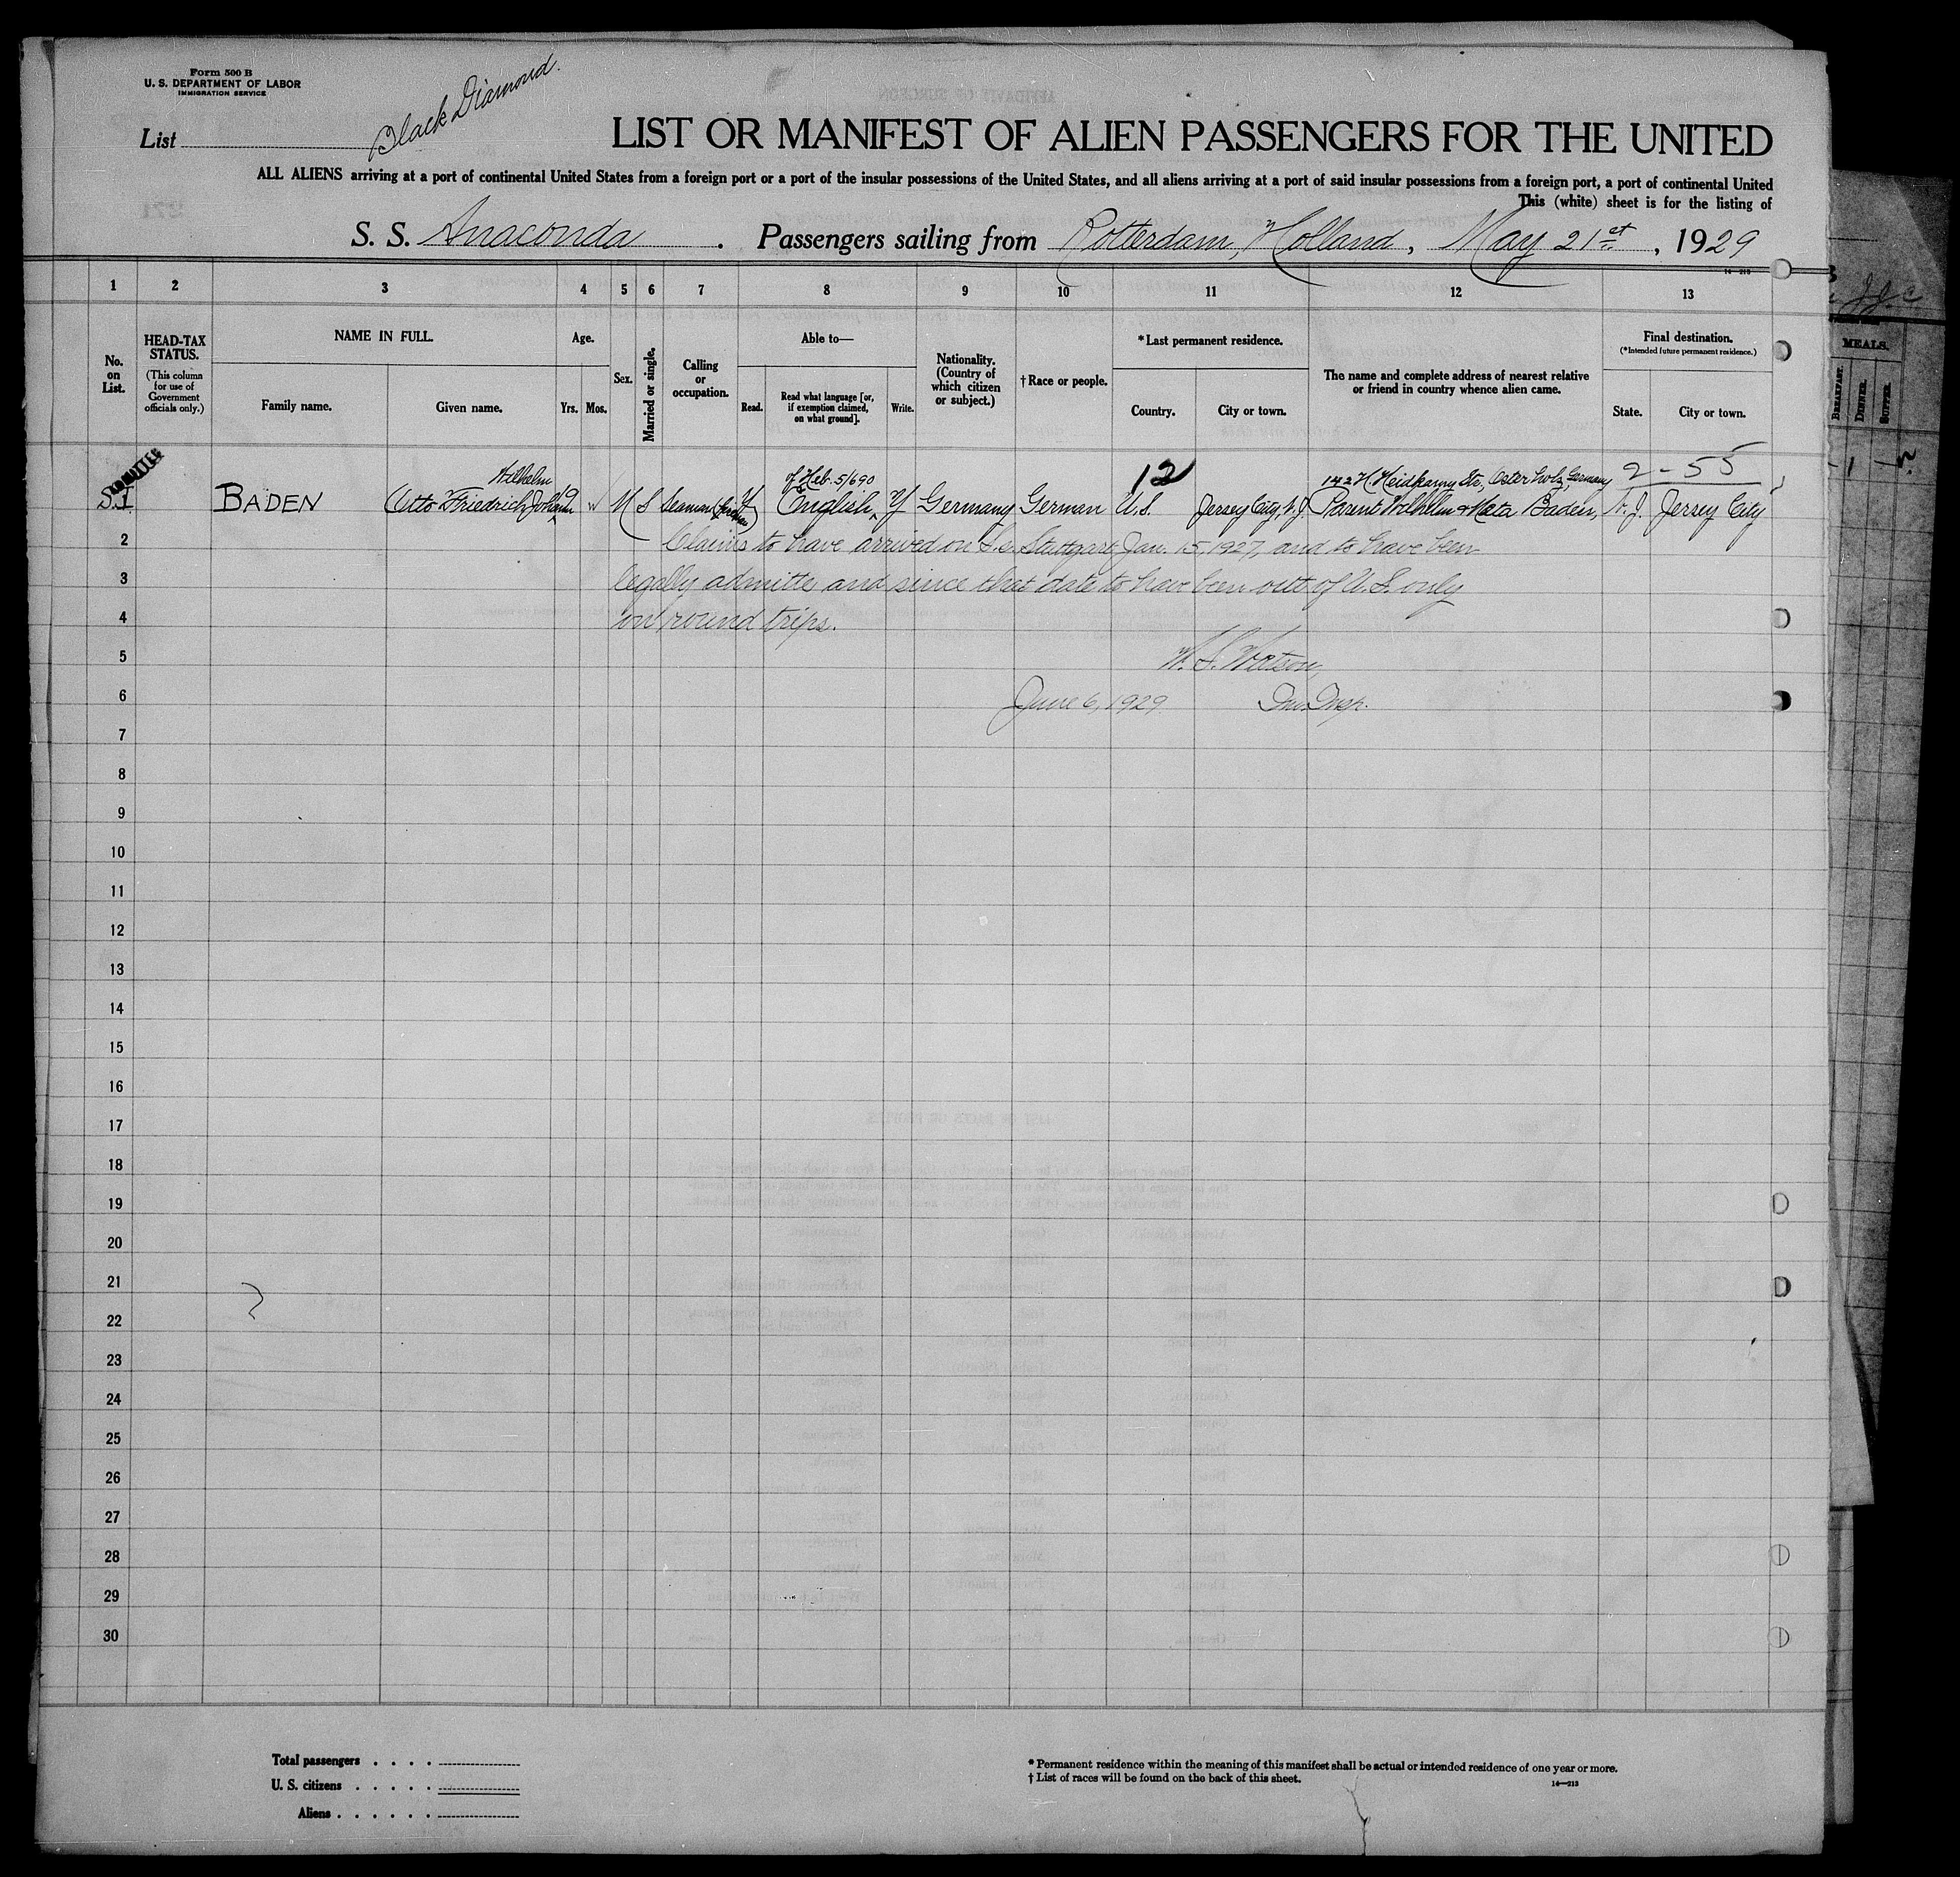 Form 500 B
U. S. DEPARTMENT OF LABOR
IMMIGRATION SERVICE
List
Black Diamond.
LIST OR MANIFEST OF ALIEN PASSENGERS FOR THE UNITED
ALL ALIENS arriving at a port of continental United States from a foreign port or a port of the insular possessions of the United States, and all aliens arriving at a port of said insular possessions from a foreign port, a port of continental United
This (white) sheet is for the listing of
S. S. Anaconda. Passengers sailing from Rotterdam, Holland, May 21st, 1929
14—213
1 2 3 4 5 6 7 8 9 10 11 12 13
No. on List.
HEAD-TAX STATUS.
(This column for use of Government officials only.)
NAME IN FULL.
Family name.
Given name.
Age.
Yrs. Mos.
Sex.
Married or single.
Calling or occupation.
Able to—
Read.
Read what language [or, if exemption claimed, on what ground].
Write.
Nationality. (Country of which citizen or subject.)
† Race or people.
* Last permanent residence.
Country.
City or town.
The name and complete address of nearest relative or friend in country whence alien came.
Final destination.
(* Intended future permanent residence.)
State.
City or town.
MEALS.
BREAKFAST.
DINNER.
SUPPER.
ADMITTED
Wilhelm
12
142 H Heidkamp Str., Osterholz, Germany
2-55
S.I. BADEN Otto Friedrich Johann M S Seaman Y English Y Germany German U.S. Jersey City, N.J. Parent Wilhelm & Meta Baden, N.J. Jersey City
2 Claims to have arrived on S.s. Stuttgart, Jan. 15, 1927, and to have been
3 legally admitte and since that date to have been out of U.S. only
4 on round trips.
5 W. S. Watson,
6 June 6, 1929 Im. Insp.
7
8
9
10
11
12
13
14
15
16
17
18
19
20
21
22
23
24
25
26
27
28
29
30
Total passengers
U. S. citizens
Aliens
* Permanent residence within the meaning of this manifest shall be actual or intended residence of one year or more.
† List of races will be found on the back of this sheet.
14—213